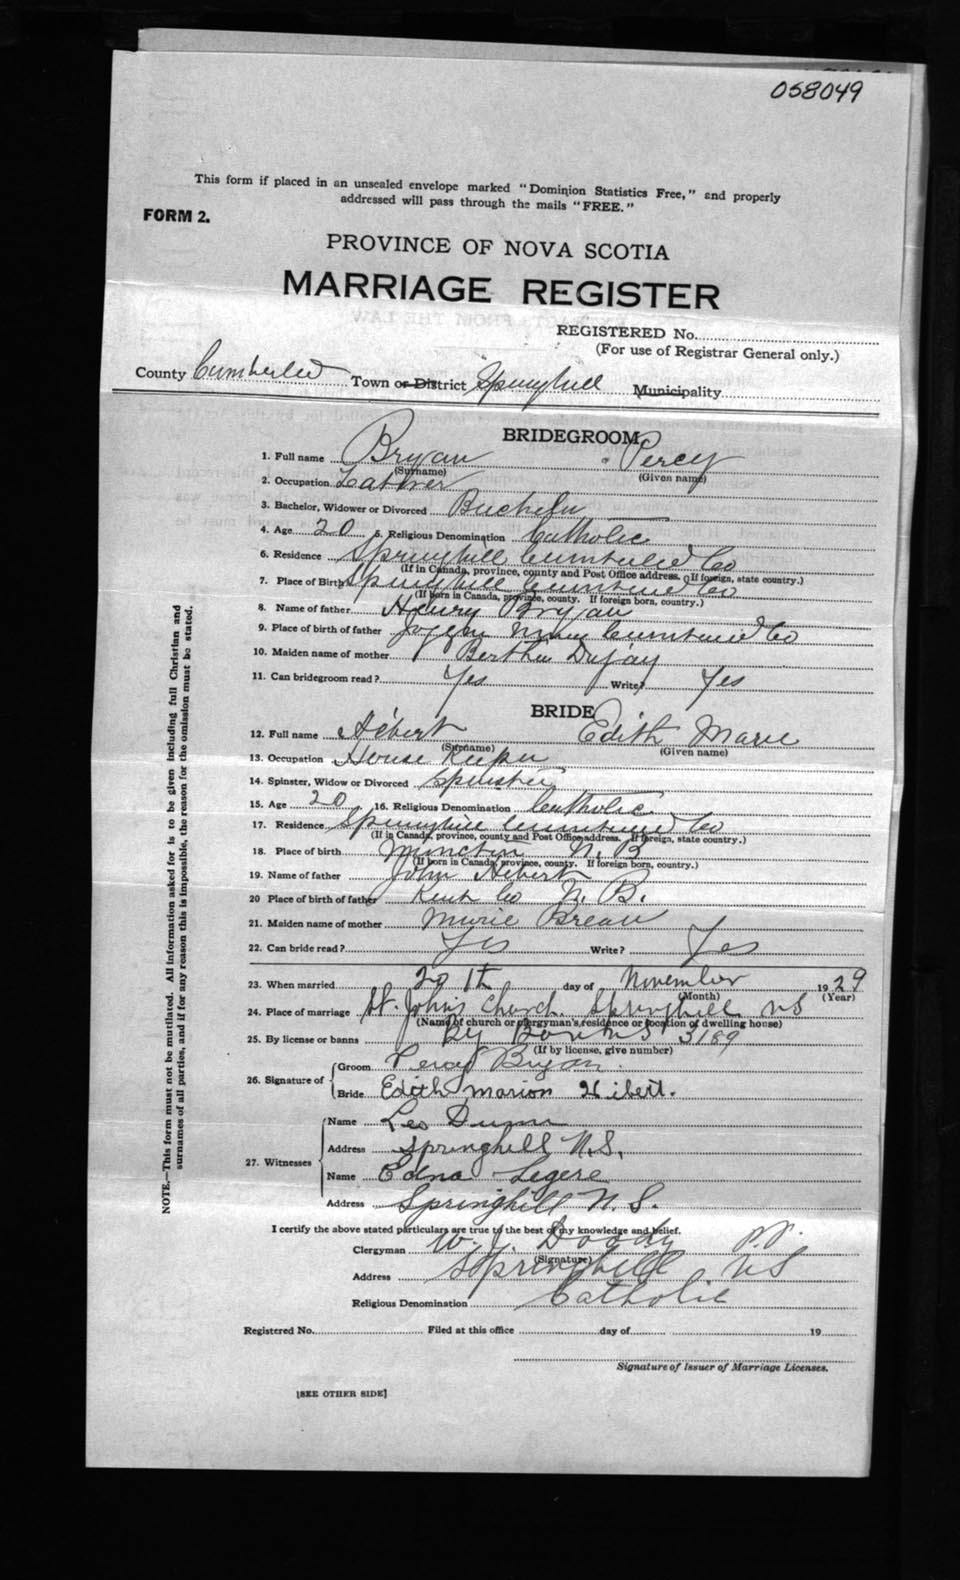 058049
This form if placed in an unsealed envelope marked "Dominion Statistics Free," and properly
addressed will pass through the mails "FREE."
FORM 2.
PROVINCE OF NOVA SCOTIA
MARRIAGE REGISTER
REGISTERED No.
(For use of Registrar General only.)
County Cumberled Town or District Springhill Municipality
BRIDEGROOM
1. Full name Bryan Percy
(Surname) (Given name)
2. Occupation
3. Bachelor, Widower or Divorced Bachelor
4. Age 20 5. Religious Denomination Catholic
6. Residence Springhill Cumberled Co
(If in Canada, province, county and Post Office address. If foreign, state country.)
7. Place of Birth Springhill Cumberled Co
(If born in Canada, province, county. If foreign born, country.)
8. Name of father Henry Bryan
9. Place of birth of father Joggin Mines Cumberled Co
10. Maiden name of mother Bertha
11. Can bridegroom read? Yes Write? Yes
BRIDE
12. Full name Hébert Edith Marie
(Surname) (Given name)
13. Occupation House Keeper
14. Spinster, Widow or Divorced Spinster
15. Age 20 16. Religious Denomination Catholic
17. Residence Springhill Cumberled Co
(If in Canada, province, county and Post Office address. If foreign, state country.)
18. Place of birth Moncton N. B
(If born in Canada, province, county. If foreign born, country.)
19. Name of father John Hebert
20 Place of birth of father Kent Co N. B.
21. Maiden name of mother Marie Breau
22. Can bride read? Yes Write? Yes
23. When married 20th day of November 1929
(Month) (Year)
24. Place of marriage St. John's Church Springhill NS
(Name of church or clergyman's residence or location of dwelling house)
25. By license or banns By Banns 3189
(If by license, give number)
26. Signature of Groom Percy Bryan.
Bride Edith Marion Hibert.
27. Witnesses Name Leo Dunn
Address Springhill N.S.
Name Edna Legere
Address Springhill N. S.
I certify the above stated particulars are true to the best of my knowledge and belief.
Clergyman W. J. Doody P.P.
(Signature)
Address Springhill NS
Religious Denomination Catholic
Registered No. Filed at this office day of 19
Signature of Issuer of Marriage Licenses.
[SEE OTHER SIDE]
NOTE.—This form must not be mutilated. All information asked for is to be given including full Christian and
surnames of all parties, and if for any reason this is impossible, the reason for the omission must be stated.